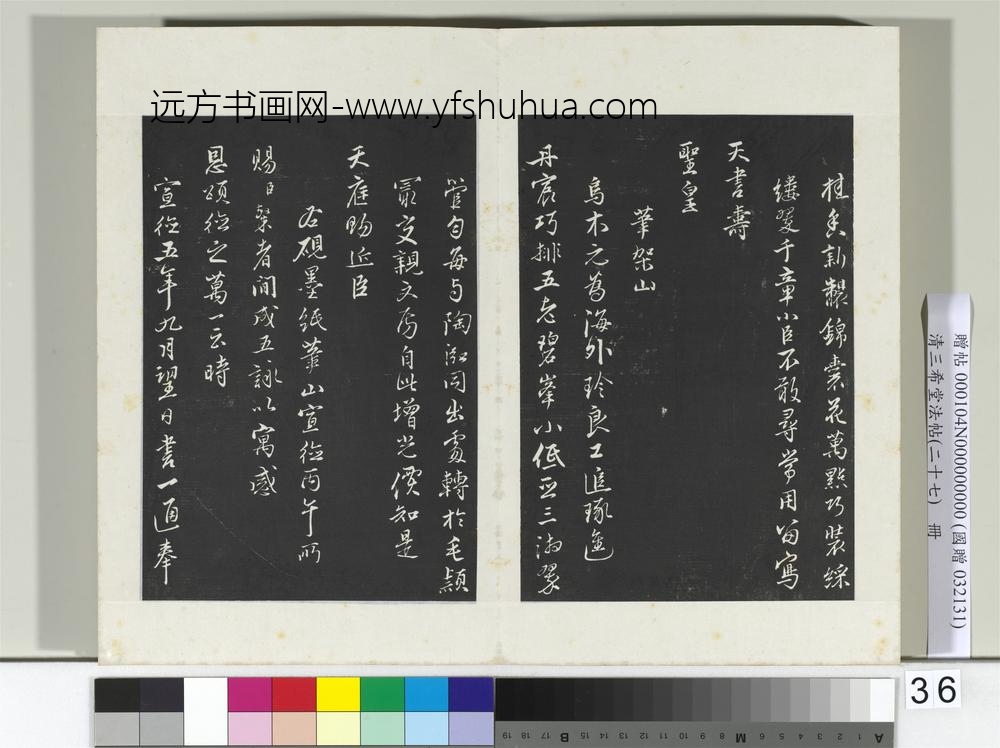 远方书画网-www.yfshuhua.com
桂香新製錦雲花萬點巧裝綵
縷翠千章小臣不敢尋常用留寫
天書壽
聖皇
筆架山
烏木元為海外珍良工追琢進
丹宸巧排五老碧峯小低亞三湘翠
管勻每與陶泓同出處轉於毛穎
最交親文房自此增光價知是
天庭賜近臣
右硯墨紙筆山宣德丙午所
賜臣榮者間成五詠以寓感
恩頌德之萬一云時
宣德五年九月望日書一通奉
贈帖 000104N000000000 (國贈 032131)
清三希堂法帖(二十七) 冊
36